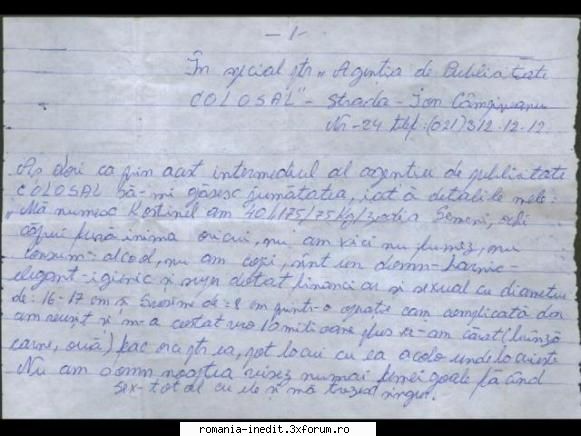 - 1 -
În special ptr „Agenția de Publicitate
COLOSAL" - Strada - Ion Câmpineanu
Nr - 24 tel: (021) 312.12.12
Aș dori ca prin acest intermediul al agenției de publicitate
COLOSAL să-mi găsesc jumătatea, iată detaliile mele:
„Mă numesc Kostinel am 40/175/75 kg/ zodia Gemeni, ochi
căprui fură inima oricui, nu am vicii nu fumez, nu
consum - alcool, nu am copii, sînt un domn - harnic -
elegant - igienic și dotat financiar și sexual cu diametru
de: 16-17 cm și Grosime de = 8 cm printr-o operație cam complicată dar
am reușit și m-a costat vreo 10 milioane plus ce-am cărat (brînză
carne, ouă) fac orice ptr ea, pot locui cu ea acolo unde locuiește
Nu am somn noaptea visez numai femei goale făcând
sex-total cu ele și mă trezesc singur.
romania-inedit.3xforum.ro